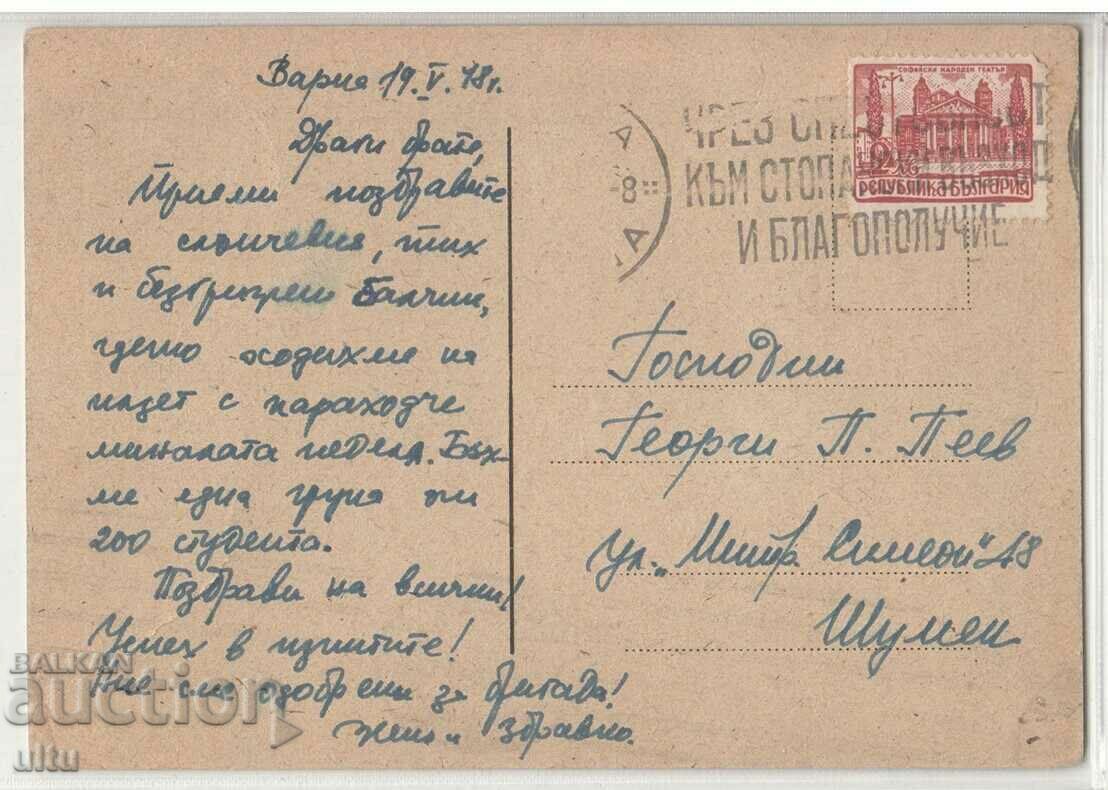 Варна 19.V.48г.
Драги брате,
Приеми поздравите
на слънчевия, тих
и безгрижен Балчик,
дето ходихме на
излет с параходче
миналата неделя. Бях-
ме една група от
200 студента.
Поздрави на всички!
Успех в изпитите!
Ние сме одобрени за бригада!
здравко.
СОФИЙСКИ НАРОДЕН ТЕАТЪР
2 ЛВ
РЕПУБЛИКА БЪЛГАРИЯ
ЧРЕЗ
КЪМ
И БЛАГОПОЛУЧИЕ
-8
Господин
Георги П. Пеев
ул. „Митр. Симеон" 48
Шумен
BALKAN
auction
ultu